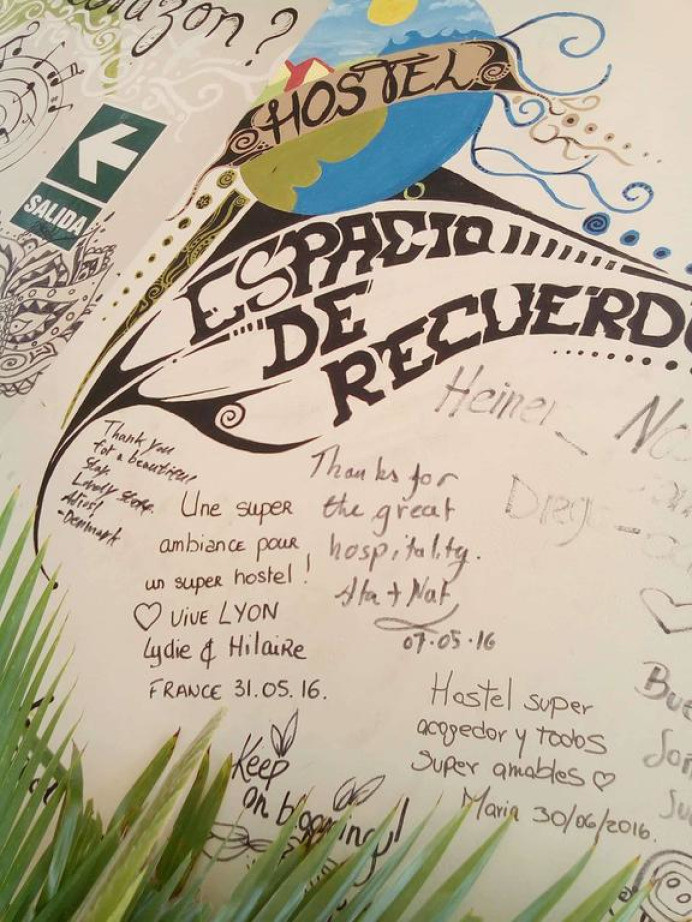 corazon?
SALIDA
HOSTEL
ESPACIO
DE
RECUERDO
Heiner
Thank you
for a beautiful
stay.
Lovely store
Adios!
-Denmark
Une super
ambiance pour
un super hostel!
♡ VIVE LYON
Lydie & Hilaire
FRANCE 31.05.16.
Thanks for
the great
hospitality.
Ata + Nat
07.05.16
Hostel super
acogedor y todos
super amables ♡
Maria 30/06/2016.
Keep
on blooming!